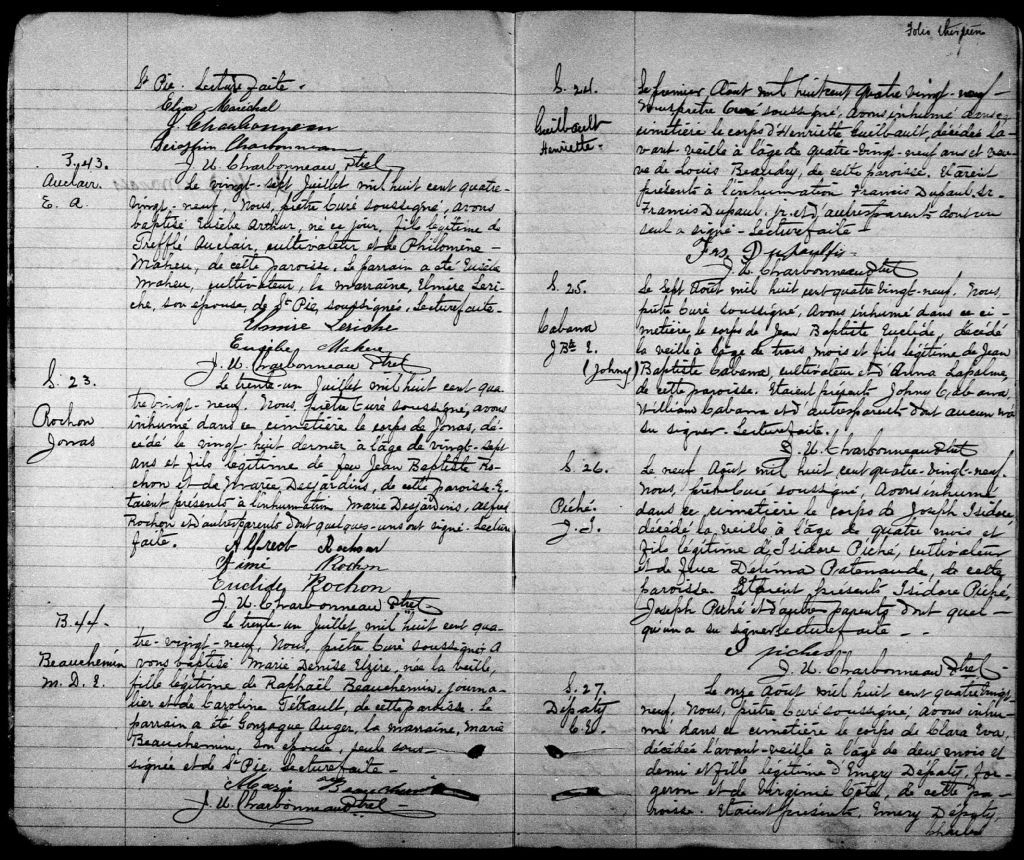 St Pie. Lecture faite.
Elza Maréchal
J. Charbonneau
Séraphin Charbonneau
J. U. Charbonneau Ptre
B. 43.
Auclair.
E. A.
Le vingt-sept Juillet mil huit cent quatre-
vingt-neuf. Nous, prêtre Curé soussigné, avons
baptisé Eusèbe Arthur, né ce jour, fils légitime de
Trefflé Auclair, cultivateur et de Philomène
Maheu, de cette paroisse. Le parrain a été Eusèbe
Maheu, cultivateur, la marraine, Elmire Leri-
che, son épouse, de St Pie, soussignés. Lecture faite.
Elmire Leriche
Eusèbe Maheu
J. U. Charbonneau Ptre
S. 23.
Rochon
Jonas
Le trente-un Juillet mil huit cent qua-
tre vingt-neuf. Nous, prêtre Curé soussigné, avons
inhumé dans ce cimetière le corps de Jonas, dé-
cédé le vingt huit dernier à l'âge de vingt-sept
ans et fils légitime de feu Jean Baptiste Ro-
chon et de Marie Desjardins, de cette paroisse. E-
taient présents à l'inhumation Marie Desjardins, Alfred
Rochon et d'autres parents dont quelques-uns ont signé. Lecture
faite.
Alfred Rochon
Aimé Rochon
Euclide Rochon
J. U. Charbonneau Ptre
B. 44.
Beauchemin
M. D. E.
Le trente-un Juillet mil huit cent qua-
tre-vingt-neuf, Nous, prêtre Curé soussigné A
vons baptisé Marie Denise Elzire, née la veille,
fille légitime de Raphaël Beauchemin, journa-
lier et de Caroline Tétrault, de cette paroisse. Le
parrain a été Gonzague Auger, la marraine, Marie
Beauchemin, son épouse, seule sous-
signée et de St Pie. Lecture faite-
Marie Beauchemin
J. U. Charbonneau Ptre
Folio
S. 24.
Guilbault
Henriette-
Le premier Août mil huit cent quatre vingt-neuf
Nous prêtre Curé soussigné, avons inhumé dans ce
cimetière le corps d'Henriette Guilbault, décédée l'a-
vant-veille à l'âge de quatre-vingt-neuf ans et veu-
ve de Louis Beaudry, de cette paroisse. Etaient
présents à l'inhumation Francis Dupaul. sr.
Francis Dupaul. jr. et d'autres parents dont un
seul a signé- Lecture faite-
Frs Dupaul fils
J. U. Charbonneau Ptre
S. 25.
Cabana
J. Bte E.
(Johny)
Le sept Août mil huit cent quatre vingt-neuf. Nous,
prêtre Curé soussigné, avons inhumé dans ce ci-
metière, le corps de Jean Baptiste Euclide, décédé
la veille à l'âge de trois mois et fils légitime de Jean
Baptiste Cabana cultivateur et d'Anna Lapalme,
de cette paroisse. Etaient présents Johny Cabana
William Cabana et d'autres parents dont aucun n'a
su signer. Lecture faite.
J. U. Charbonneau Ptre
S. 26.
Piché.
J. I.
Le neuf Août mil huit cent quatre vingt-neuf.
Nous, prêtre Curé soussigné, avons inhumé
dans ce cimetière le corps de Joseph Isidore
décédé la veille à l'âge de quatre mois et
fils légitime d'Isidore Piché, cultivateur
et de feue Délima Patenaude, de cette
paroisse. Etaient présents Isidore Piché,
Joseph Piché et d'autres parents dont quel-
qu'un a su signer. Lecture faite--
piches
J. U. Charbonneau Ptre
S. 27.
Députy
C. E.
Le onze Août mil huit cent quatre vingt
neuf, Nous, prêtre Curé soussigné, avons inhu-
mé dans ce cimetière le corps de Clara Eva,
décédée l'avant-veille à l'âge de deux mois et
demi et fille légitime d'Emery Députy, for-
geron et de Virginie Côté, de cette pa-
roisse. Etaient présents, Emery Députy,
Charles